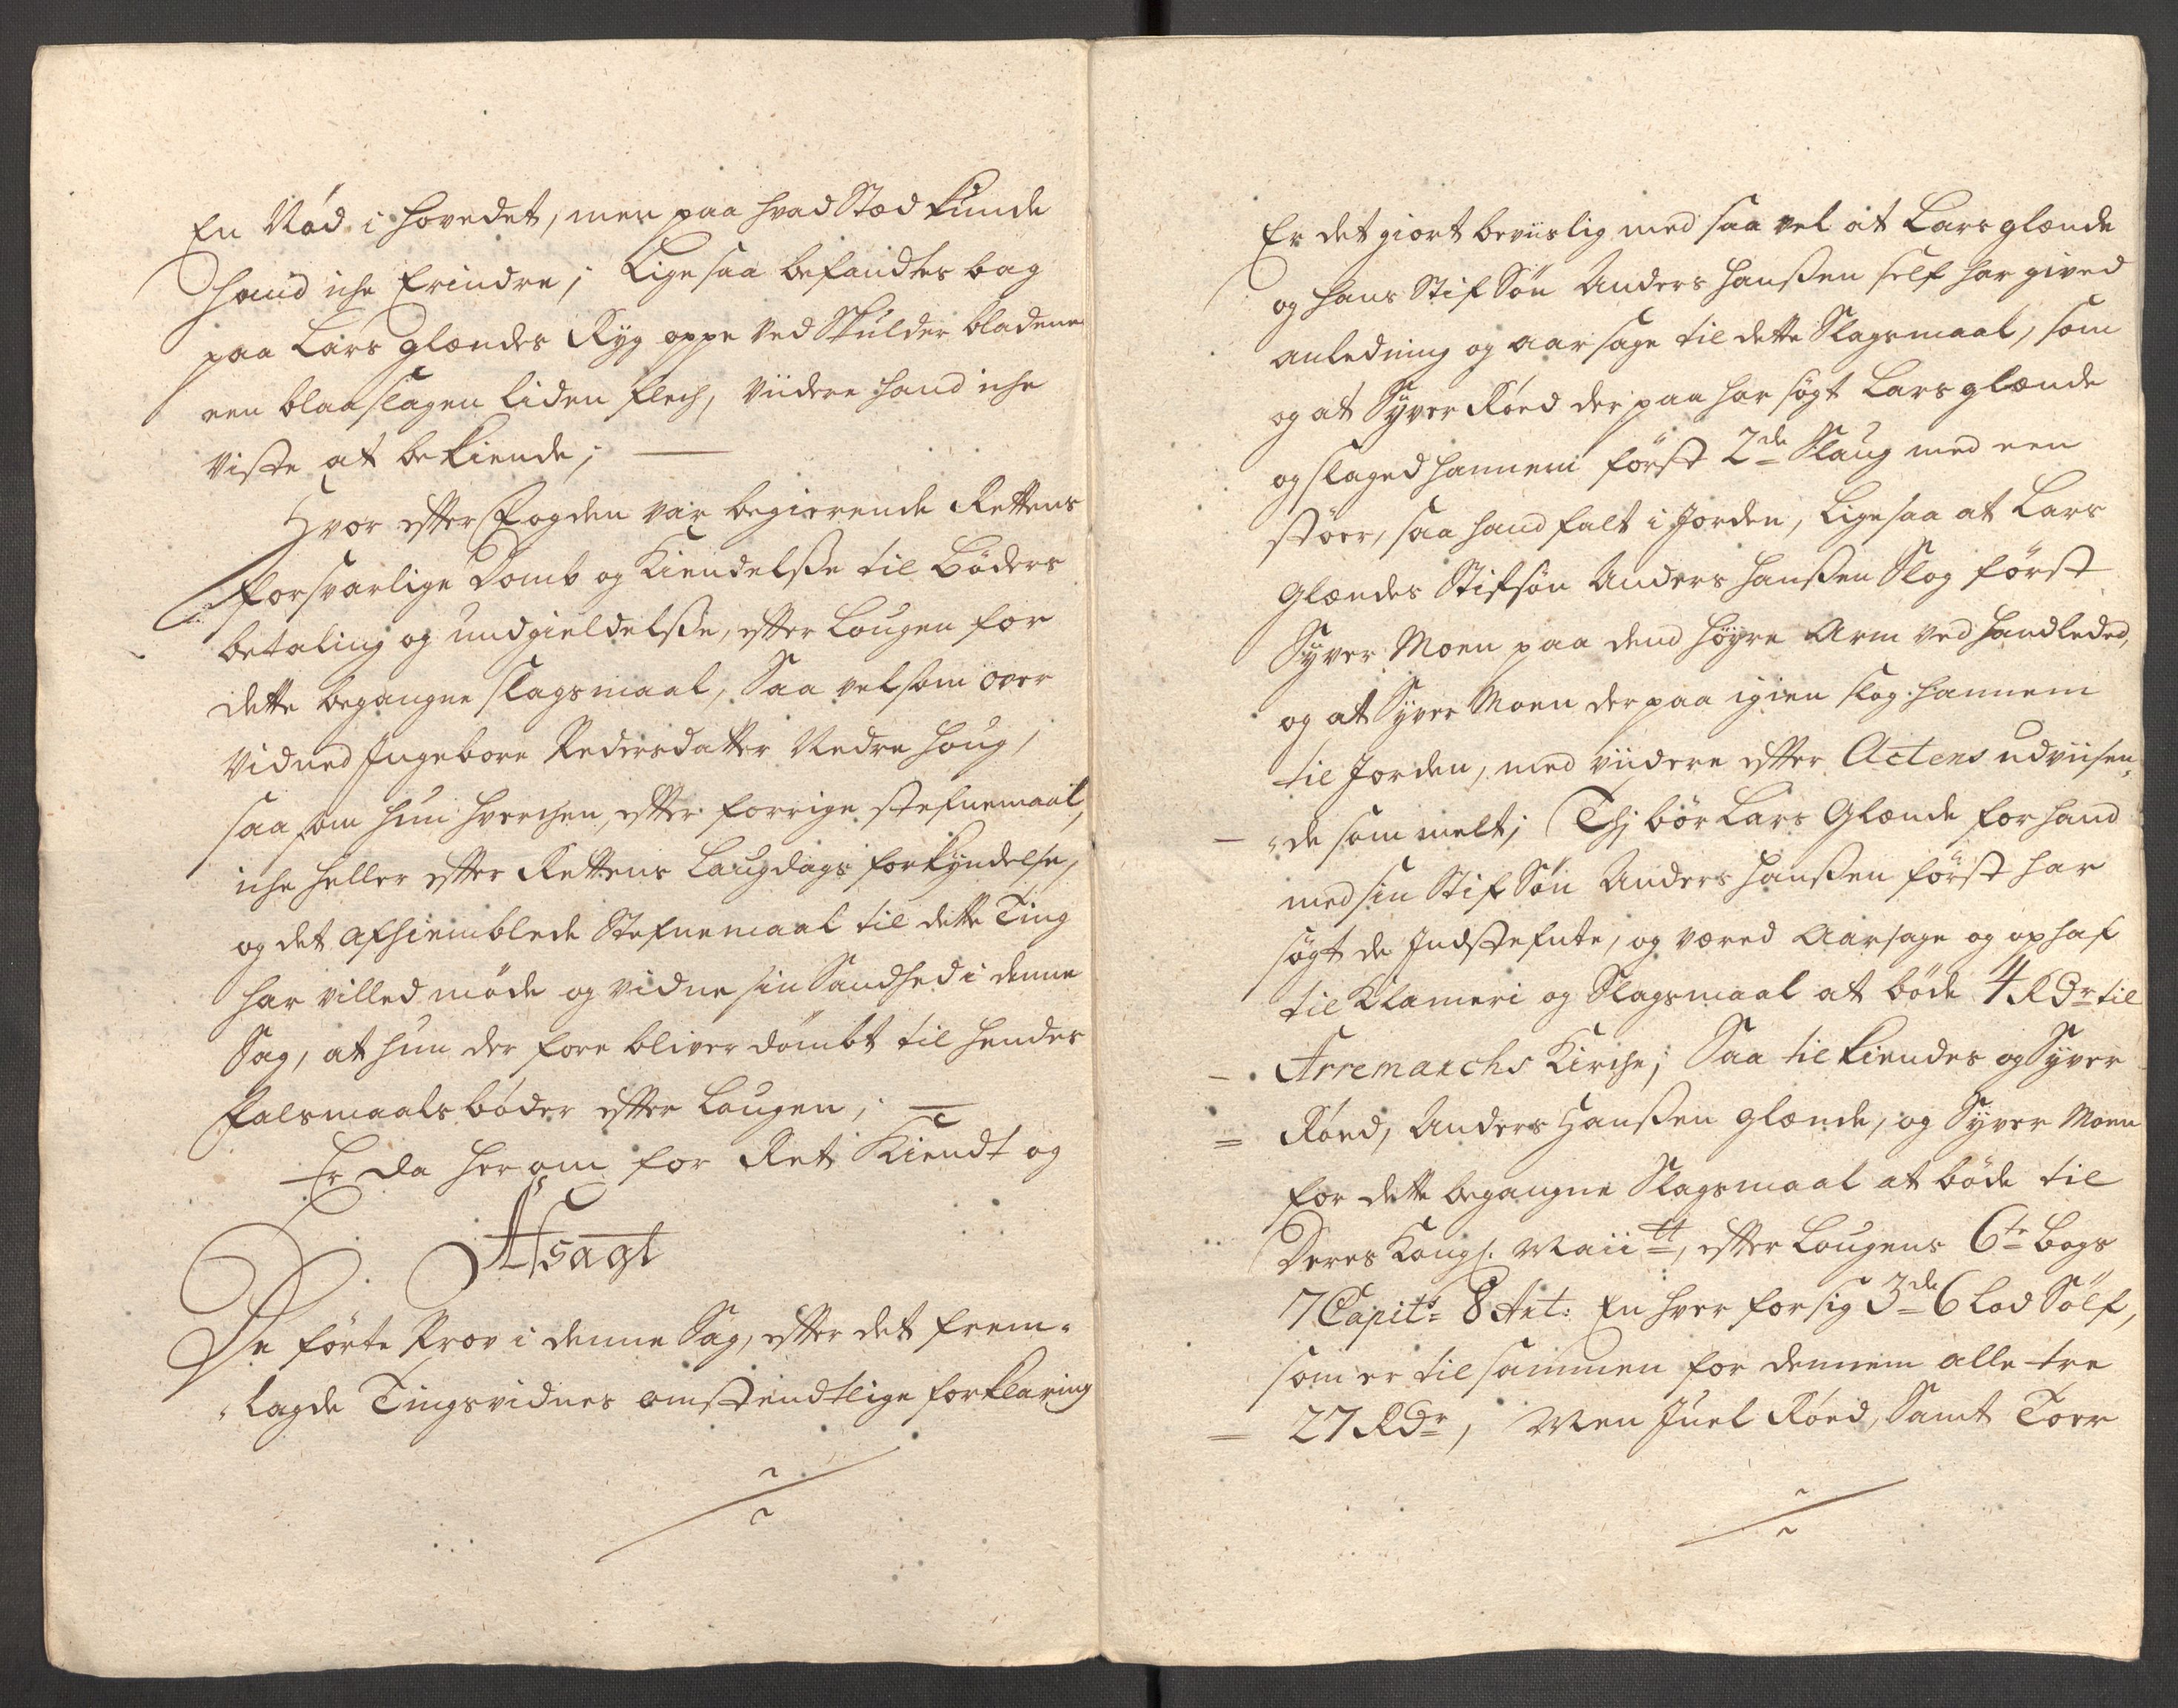 En Nød i hovedet, men paa hvad Stæd kunde
hand iche Erindre; Ligesaa befandtes bag
paa Lars Glændes Ryg oppe ved Skulder bladene
een blaaslagen liden flech, viidere hand iche
viste at bekiende;
Hvor effter Fogden var begierende Rettens
forsvarlige Domb og Kiendelsse til Bøders
betaling og undgieldelsse, effter Lougen for
dette begangne slagsmaal, Saa velsom over
Vidned Ingebore Pedersdatter Nedre Houg,
saasom hun hverchen, effter forrige stefnemaal,
iche heller effter Rettens Laugdags forkyndelse,
og det afhiemblede Stefnemaal til dette Ting
har villed møde og vidne sin Sandhed i denne
Sag, at hun der fore bliver dømbt til hendes
Falsmaals bøder effter Lougen;
Er da her om for Ret Kiendt og
Afsagt
De førte Prov i denne Sag, effter det frem-
lagde Tingsvidnes omstendtlige forklaring
Er det giort beviislig med saa vel at Lars glænde
og hans Stif Søn Anders Hanssen self har gived
anledning og aarsage til dette Slagsmaal, som
og at Syver Røed der paa har søgt Lars glænde
og slaged hannem først 2de Slaug med een
støer, saa hand falt i Jorden, ligesaa at Lars
Glændes Stifsøn Anders Hanssen Slog først
Syver Moen paa dend høyre Arm ved handleded,
og at Syver Moen der paa igien slog hannem
til Jorden, med viidere effter Actens udviisen-
de som melt; Thj bør Lars Glænde for hand
med sin Stif Søn Anders Hanssen først har
søgt de Indstefnte, og væred Aarsage og ophaf
til Klameri og Slagsmaal at bøde 4 Rdr til
Arremarchs Kirche; Saa tilkiendes og Syver
Røed, Anders Hanssen glænde, og Syver Moen
for dette begangne Slagsmaal at bøde til
Deres Kongl. Maiitt, effter Lougens 6te Bogs
7 Capitl 8 Art: En hver for sig 3de 6 Lod Sølf,
som er tilsammen for dennem alle tre
27 Rdr, Men Juel Røed, Samt Torr